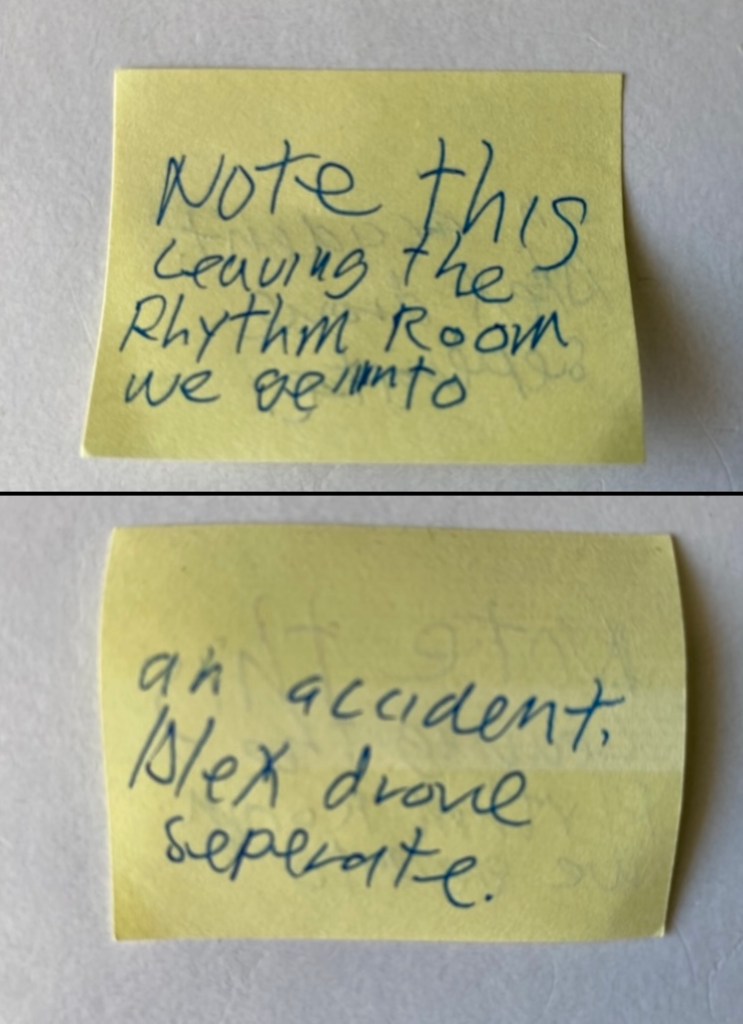 Note this
Leaving the
Rhythm Room
we into
an accident,
Alex drove
seperate.